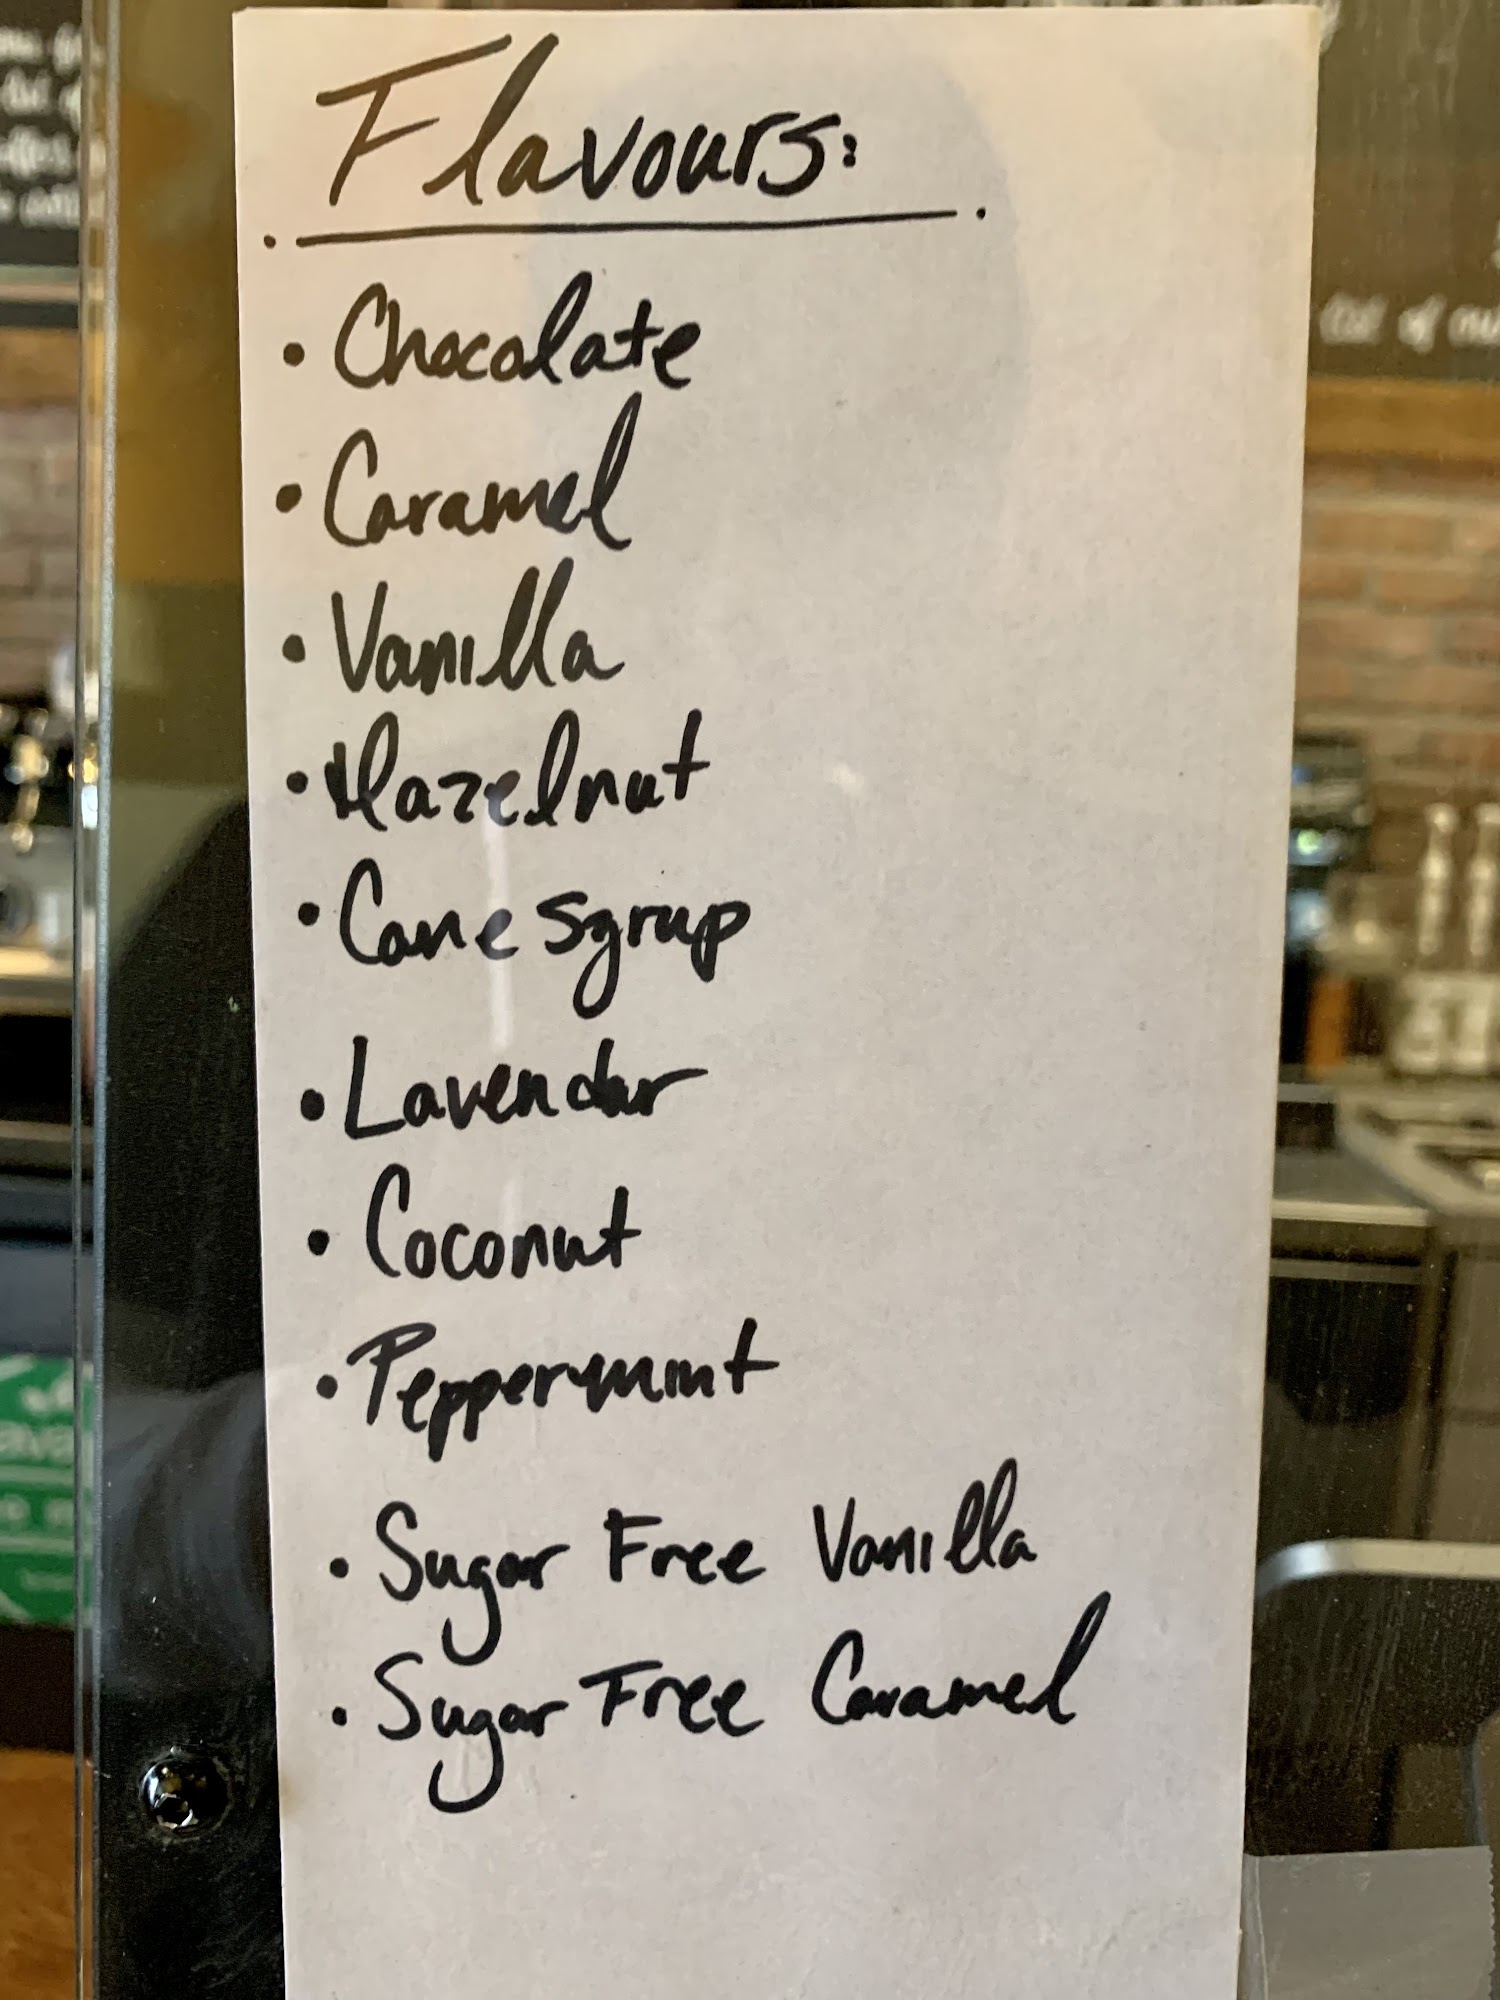 Flavours:
• Chocolate
• Caramel
• Vanilla
• Hazelnut
• Cane syrup
• Lavendar
• Coconut
• Peppermint
• Sugar Free Vanilla
• Sugar Free Caramel